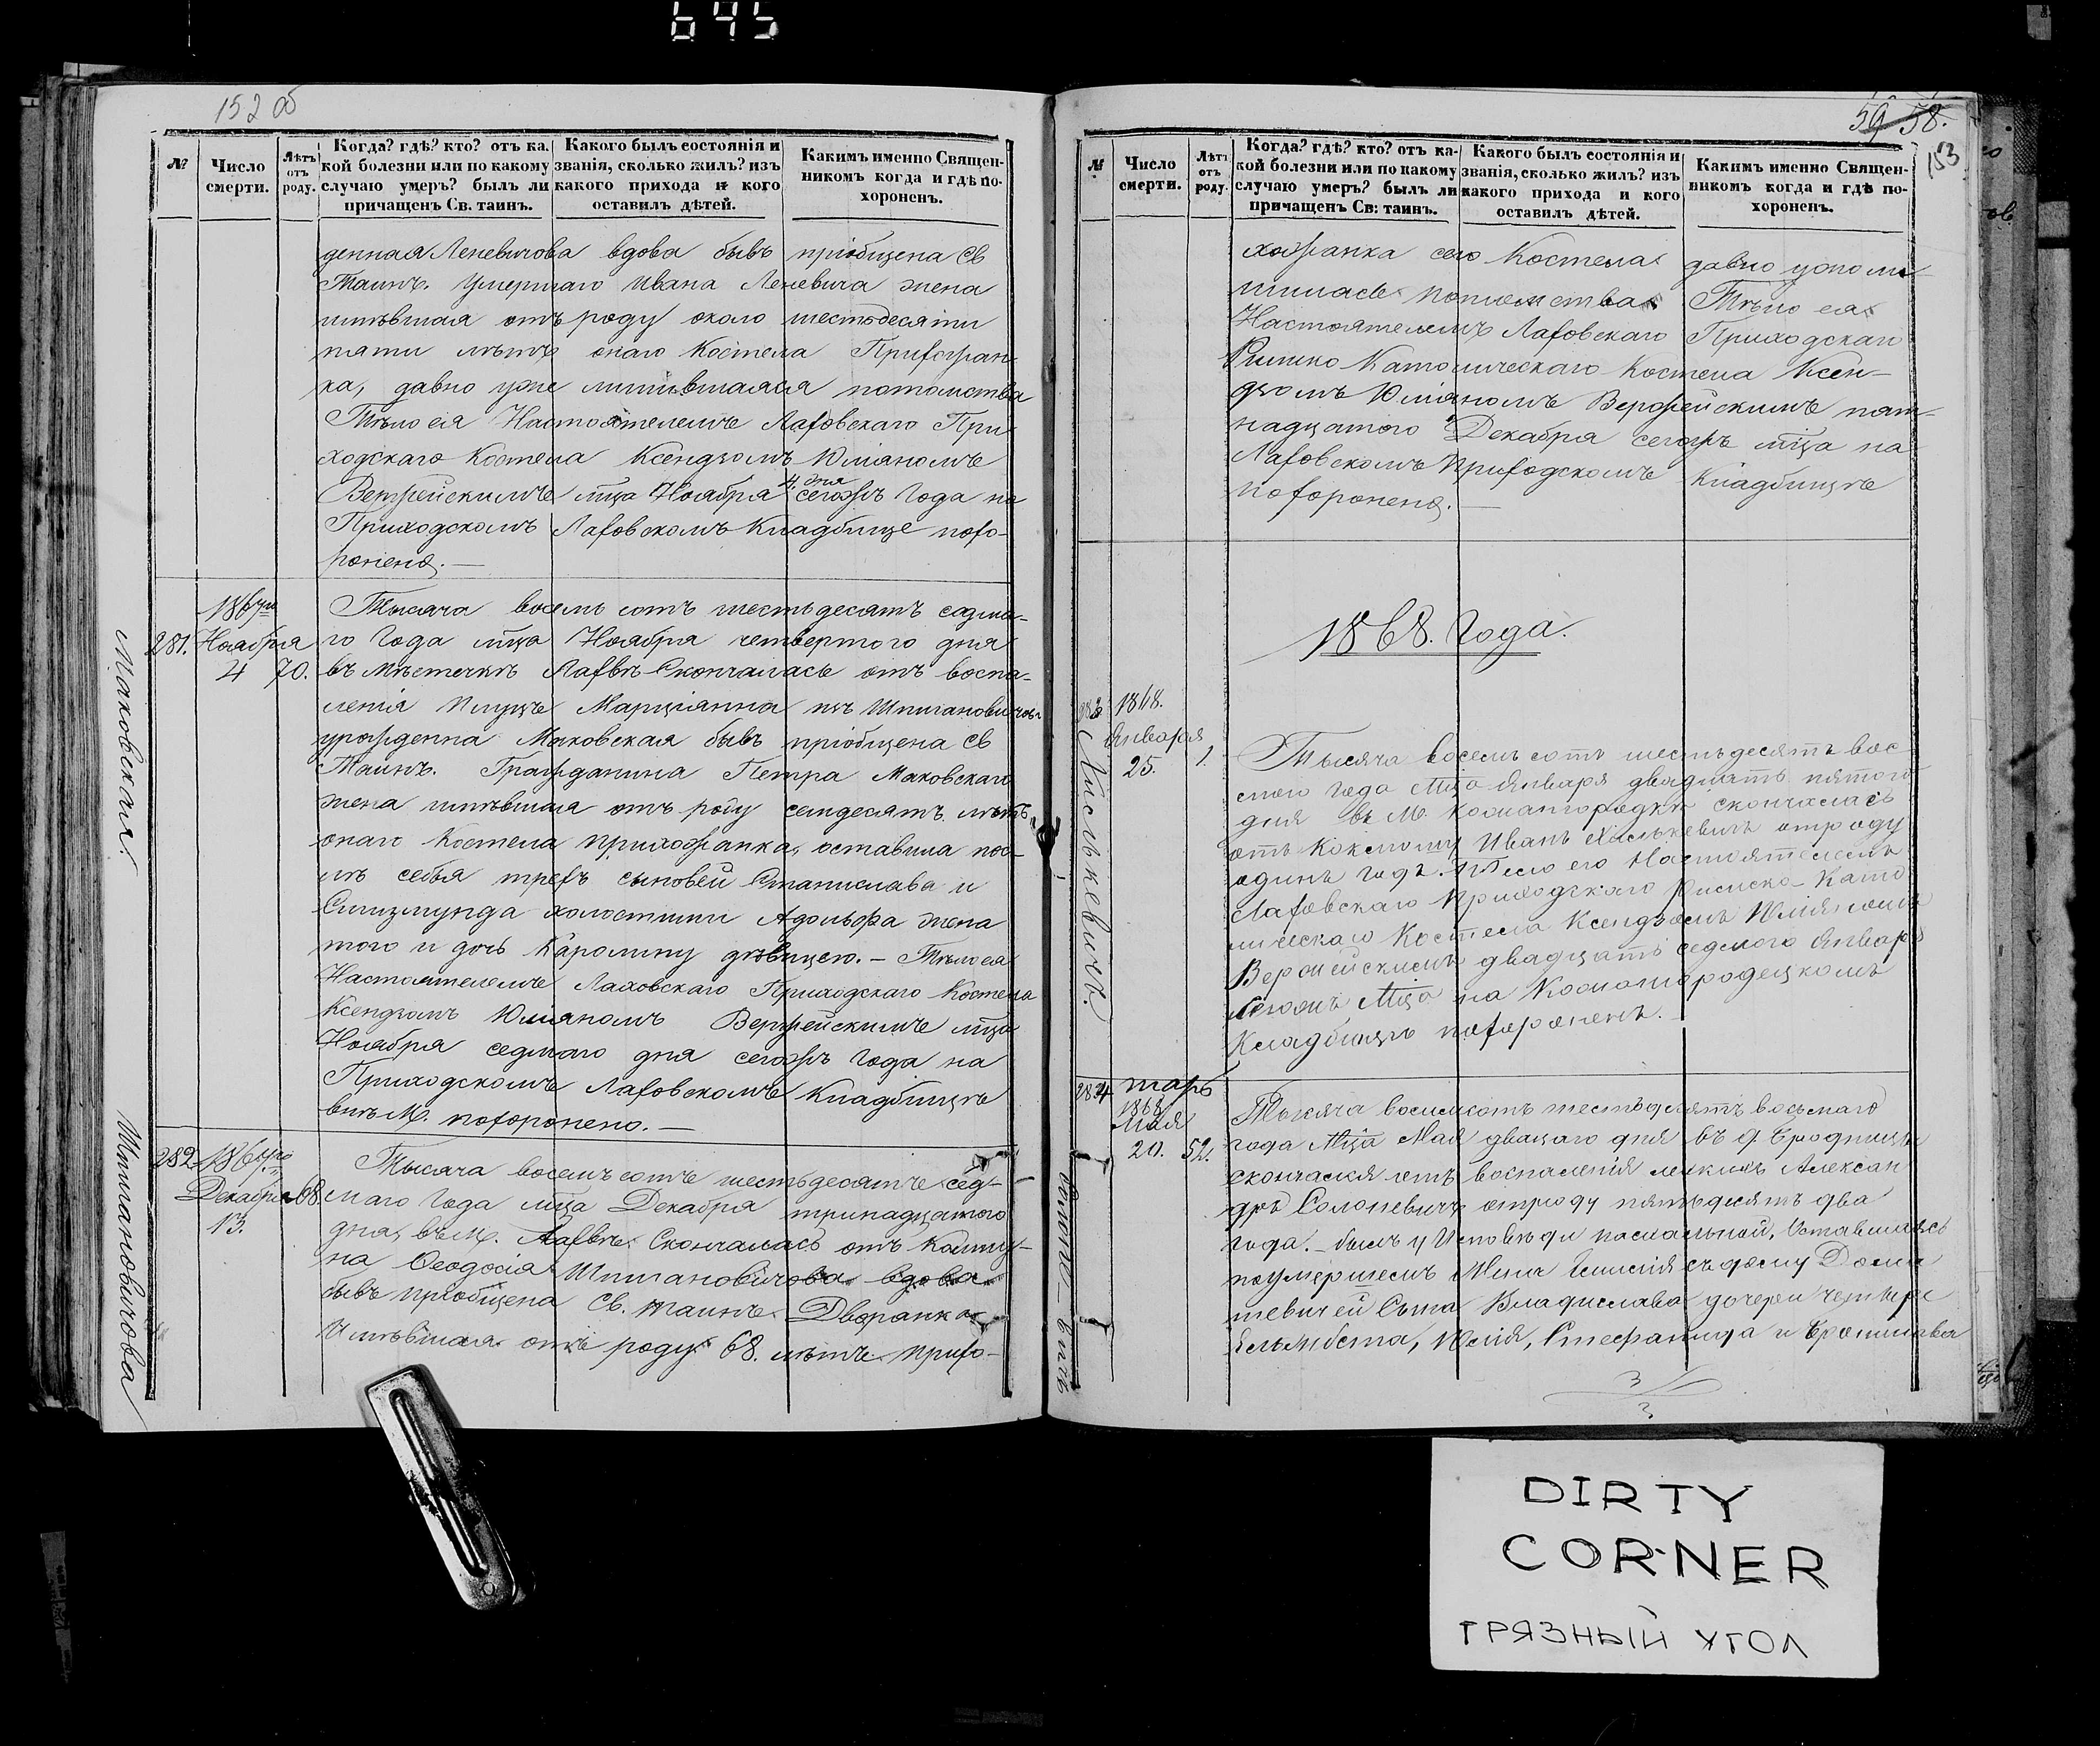 645
152 об
№
Число смерти.
Лѣтъ отъ роду.
Когда? гдѣ? кто? отъ ка-
кой болезни или по какому
случаю умеръ? былъ ли
причащенъ Св. таинъ.
Какого былъ состоянія и
званія, сколько жилъ? изъ
какого прихода и кого
оставилъ дѣтей.
Какимъ именно Священ-
никомъ когда и гдѣ по-
хороненъ.
денная Леневичова вдова бывъ пріобщена Св
Таинъ. Умершаго Ивана Леневича жена
имѣвшая отъ роду около шестьдесяти
пяти лѣтъ онаго Костела Прихожан-
ка, давно уже лишившаяся потомства
Тѣло ея Настоятелемъ Лаховскаго При-
ходскаго Костела Ксендзомъ Юліаномъ
Вержейскимъ мца Ноября 4. дня сегожъ Года на
Приходскомъ Лаховскомъ Кладбище похо-
ронено.—
Маковская.
281.
1867го
Ноября
4
70.
Тысяча восемь сотъ шестьдесятъ седма-
го Года мца Ноября четвертого дня
въ Мѣстечкѣ Лахвѣ Скончалась отъ воспа-
ленія Плуцъ Марціанна изъ Шпигановичовъ
урожденна Маковская бывъ пріобщена Св
Таинъ. Гражданина Петра Маковскаго
жена имѣвшая отъ роду семдесятъ лѣтъ
онаго Костела прихожанка, оставила пос-
лѣ себя трехъ сыновей Станислава и
Сигизмунда холостыми Адольфа жена
того и дочь Каролину дѣвицею.— Тѣло ея
Настоятелемъ Лаховскаго Приходскаго Костела
Ксендзомъ Юліяномъ Вержейскимъ мца
Ноября седмаго дня сегожъ Года на
Приходскомъ Лаховскомъ Кладбищѣ
М. похоронено.—
Шпигановичова
282.
1867го
Декабря
13.
68.
Тысяча восемъ сотъ шестьдесятъ сед-
маго Года мца Декабря тринадцатого
дна, въ М. Лахвѣ Скончалась отъ Калту-
на Феодосія Шпигановичова вдова
бывъ пріобщена Св. таинъ Дворанка
Имѣвшая отъ роду 68. лѣтъ прихо-
59 58.
153
№
Число смерти.
Лѣтъ отъ роду.
Когда? гдѣ? кто? отъ ка-
кой болезни или по какому
случаю умеръ? былъ ли
причащенъ Св: таинъ.
Какого былъ состоянія и
званія, сколько жилъ? изъ
какого прихода и кого
оставилъ дѣтей.
Какимъ именно Священ-
никомъ когда и гдѣ по-
хороненъ.
хожанка сего Костела давно уже ли-
шилась потомства Тѣло ея
Настоятелемъ Лаховскаго Приходскаго
Римско Католическаго Костела Ксен-
дзомъ Юліяномъ Вержейскимъ пят-
надцатого Декабря сегожъ мца на
Лаховскомъ Приходскомъ Кладбищѣ
похоронена.—
1868. Года.
283
1868.
Января
25.
1.
Тысяча восемь сотъ шестьдесятъ вос
мого года Мца Января двадцать пятого
дня въ М. Кожангородкѣ скончалась
отъ Коклюшу Иванъ отъ роду
одинъ годъ. Тѣло его Настоятелемъ
Лаховскаго Приходскаго Римско-Като
лическаго Костела Ксендзомъ Юліяномъ
Вержейскимъ двадцать седмого Января
сегожъ Мца на Кожангородецкомъ
Кладбищѣ похороненъ.—
284
1868
Мая
20.
52.
Тысяча восемсотъ шестьдесятъ восьмаго
года Мца Мая двацаго дня въ д. Бродницы
скончался отъ воспаленія легкихъ Алексан
дръ Солоневичъ отроду пятьдесятъ два
года.— былъ у Исповѣди пасхальной, Оставшаясь
по умершемъ Жена Емилія съ дому
Сына Владислава дочерей четыре
Ельжбета, Юлія, Стефанида и Бронислава
DIRTY
CORNER
ГРЯЗНЫЙ УГОЛ